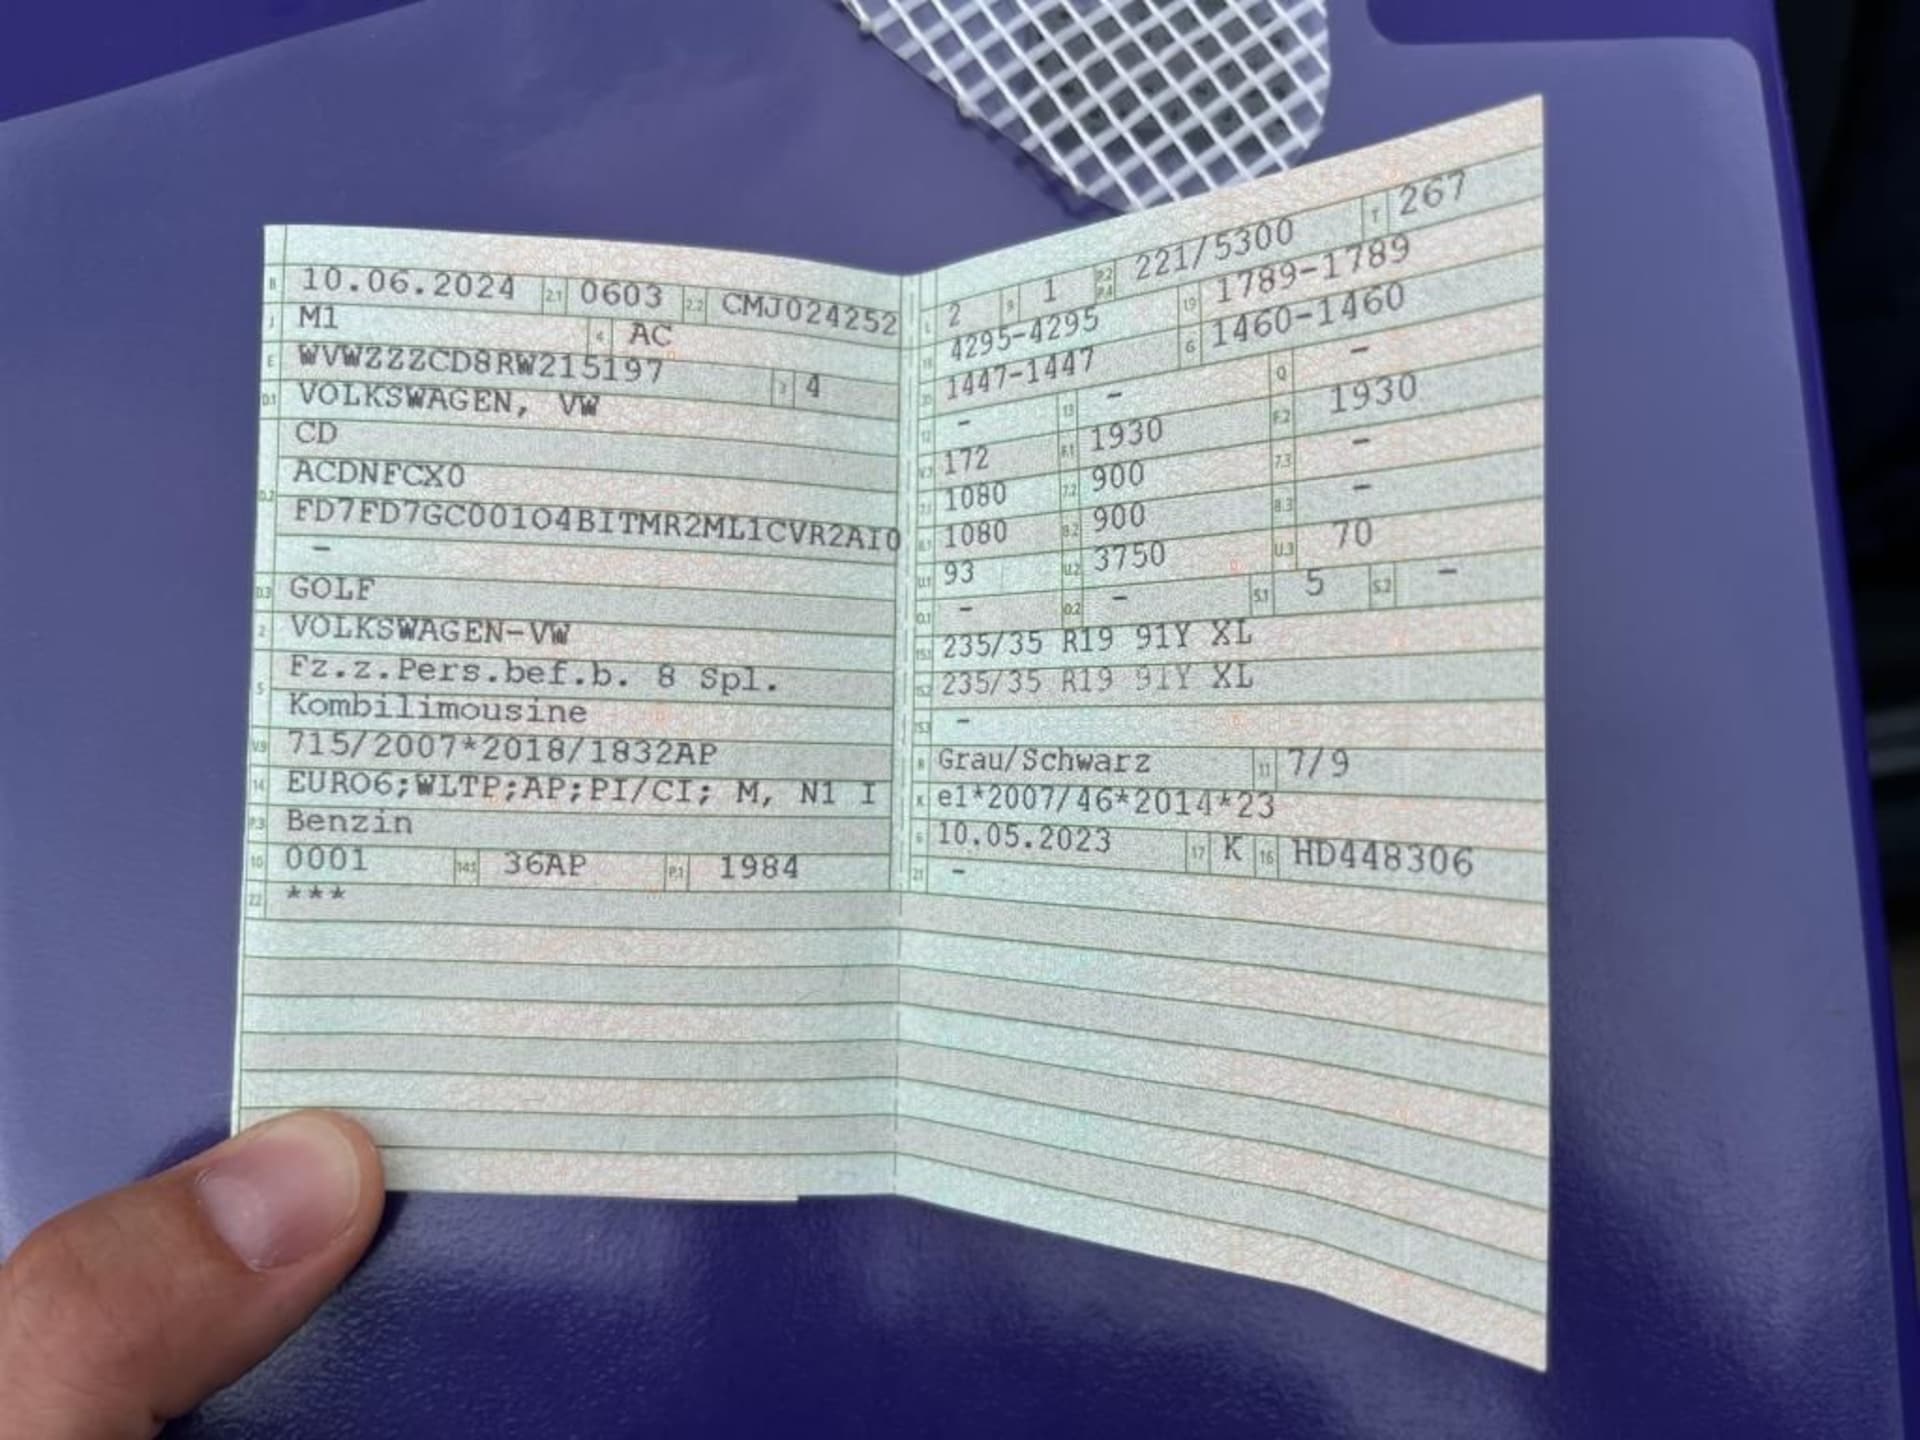 B 10.06.2024 2.1 0603 2.2 CMJ024252
J M1 4 AC
E WVWZZZCD8RW215197 3 4
D.1 VOLKSWAGEN, VW
CD
D.2 ACDNFCX0
FD7FD7GC001O4BITMR2ML1CVR2AI0
-
D.3 GOLF
2 VOLKSWAGEN-VW
5 Fz.z.Pers.bef.b. 8 Spl.
Kombilimousine
V.9 715/2007*2018/1832AP
14 EURO6;WLTP;AP;PI/CI; M, N1 I
P.3 Benzin
10 0001 14.1 36AP P.1 1984
22 ***
L 2 9 1 P.2 P.4 221/5300 T 267
18 4295-4295 19 1789-1789
20 1447-1447 G 1460-1460
12 - 13 - Q -
V.7 172 F.1 1930 F.2 1930
7.1 1080 7.2 900 7.3 -
8.1 1080 8.2 900 8.3 -
U.1 93 U.2 3750 U.3 70
O.1 - O.2 - S.1 5 S.2 -
15.1 235/35 R19 91Y XL
15.2 235/35 R19 91Y XL
15.3 -
R Grau/Schwarz 11 7/9
K e1*2007/46*2014*23
6 10.05.2023 17 K 16 HD448306
21 -